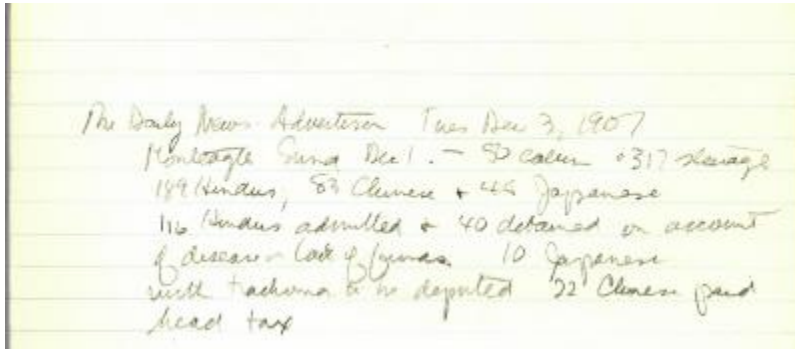 The Daily News-Advertiser Tues Dec 3, 1907
Monteagle Dec 1. - cabin + 317 steerage
189 Hindus, 83 Chinese + 45 Japanese
116 Hindus admitted + 40 detained on account
of disease or lack of funds 10 Japanese
with trachoma to be deported 22 Chinese paid
head tax